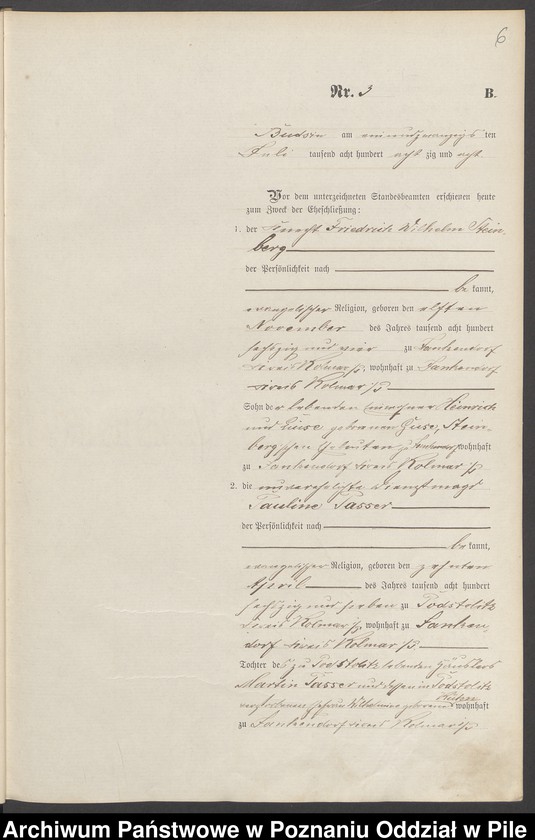 6
Nr. 3
B.
Budsin am einundzwanzigsten
Juli tausend acht hundert achtzig und acht
Vor dem unterzeichneten Standesbeamten erschienen heute
zum Zweck der Eheschließung:
1. der Knecht Friedrich Wilhelm Stein-
berg
der Persönlichkeit nach
bekannt,
evangelischer Religion, geboren den elften
November des Jahres tausend acht hundert
sechszig und vier zu Jankendorf
Kreis Kolmar i/P, wohnhaft zu Jankendorf
Kreis Kolmar i/P
Sohn der lebenden Heinrich
und Luise geborenen Stein-
berg'schen Eheleuten zu wohnhaft
zu Jankendorf Kreis Kolmar i/P
2. die unverehelichte Dienstmagd
Pauline Tasser
der Persönlichkeit nach
bekannt,
evangelischer Religion, geboren den zehnten
April des Jahres tausend acht hundert
sechszig und sieben zu Podstolitz
Kreis Kolmar i/P, wohnhaft zu Janken-
dorf Kreis Kolmar i/P.
Tochter des zu Podstolitz lebenden Häuslers
Martin Tasser und dessen in Podstolitz
verstorbenen Ehefrau Wilhelmine geborene wohnhaft
zu Jankendorf Kreis Kolmar i/P
Archiwum Państwowe w Poznaniu Oddział w Pile